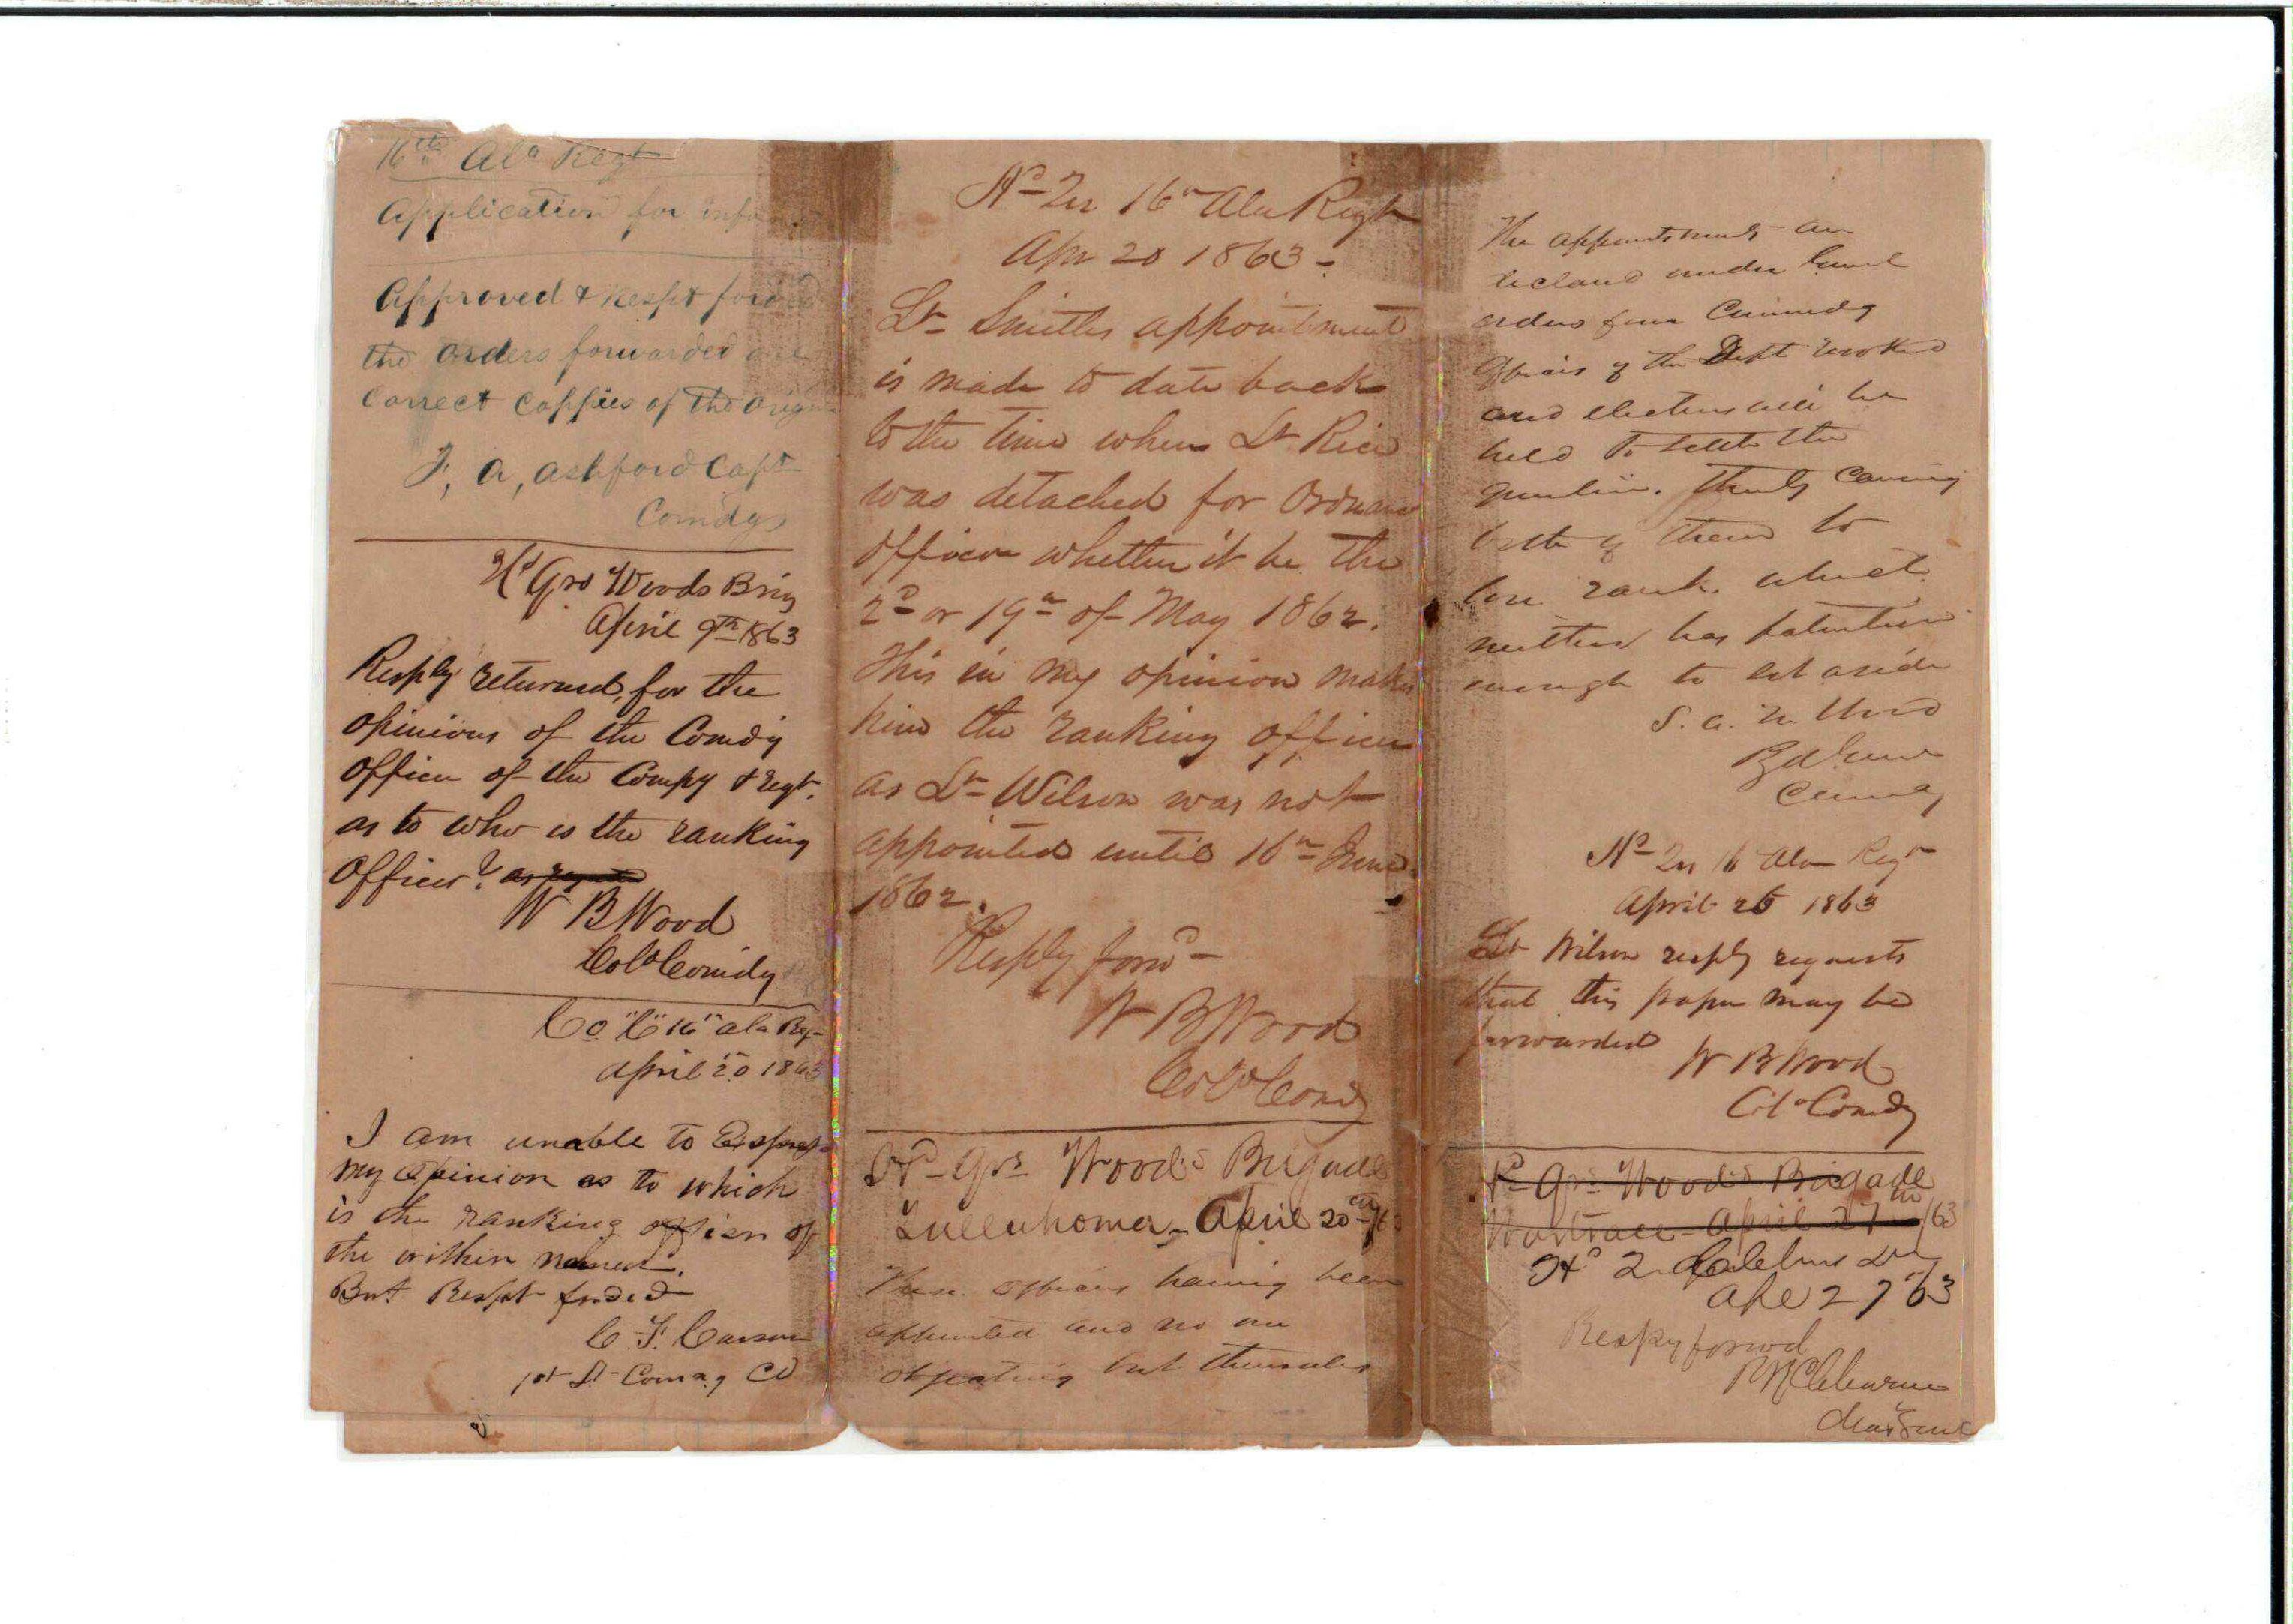 16th Ala Regt
Application for info
Approved & Respt forwd
the orders forwarded are
Correct Coppies of the Origin
F, A, Ashford Capt
Comdg
Hd Qrs Woods Brig
April 9th 1863
Resply returned, for the
opinions of the Comdg
officer of the Compy & Regt.
as to who is the ranking
officer?
W B Wood
Col Comdg
Co "C" 16" Ala Reg
April 20 1863
I am unable to Express
my opinion as to which
is the ranking officer of
the within named.
But Respt forded
C. F. Carson
1st Lt Comdg Co
Hd Qrs 16th Ala Regt
Apr 20 1863
Lt Smiths appointment
is made to date back
to the time when Lt Rice
was detached for Ordnance
officer whether it be the
2d or 19th of May 1862.
This in my opinion makes
him the ranking officer
as Lt Wilson was not
appointed until 16th June
1862.
Resply forwd
W B Wood
Col Comdg
Hd Qrs Wood's Brigade
Tullahoma April 20th /63
These officers having been
appointed and no one
objecting but themselves
The appointments are
declared under
orders from Commdg
of the Dept revoked
and elections will be
held to settle the
question. Thereby causing
both of them to
lose rank. which
neither has
enough to set aside
S. A. M. Wood
Brd Genl
Commdg
Hd Qrs 16 Ala Regt
April 26 1863
Lt Wilson resply requests
that this paper may be
forwarded
W B Wood
Col Comdg
Hd Qrs Wood's Brigade
Wartrace April 27th /63
Hd Q Cleburne Div
Apl 27 '63
Respy forwd
P R Cleburne
Maj Genl